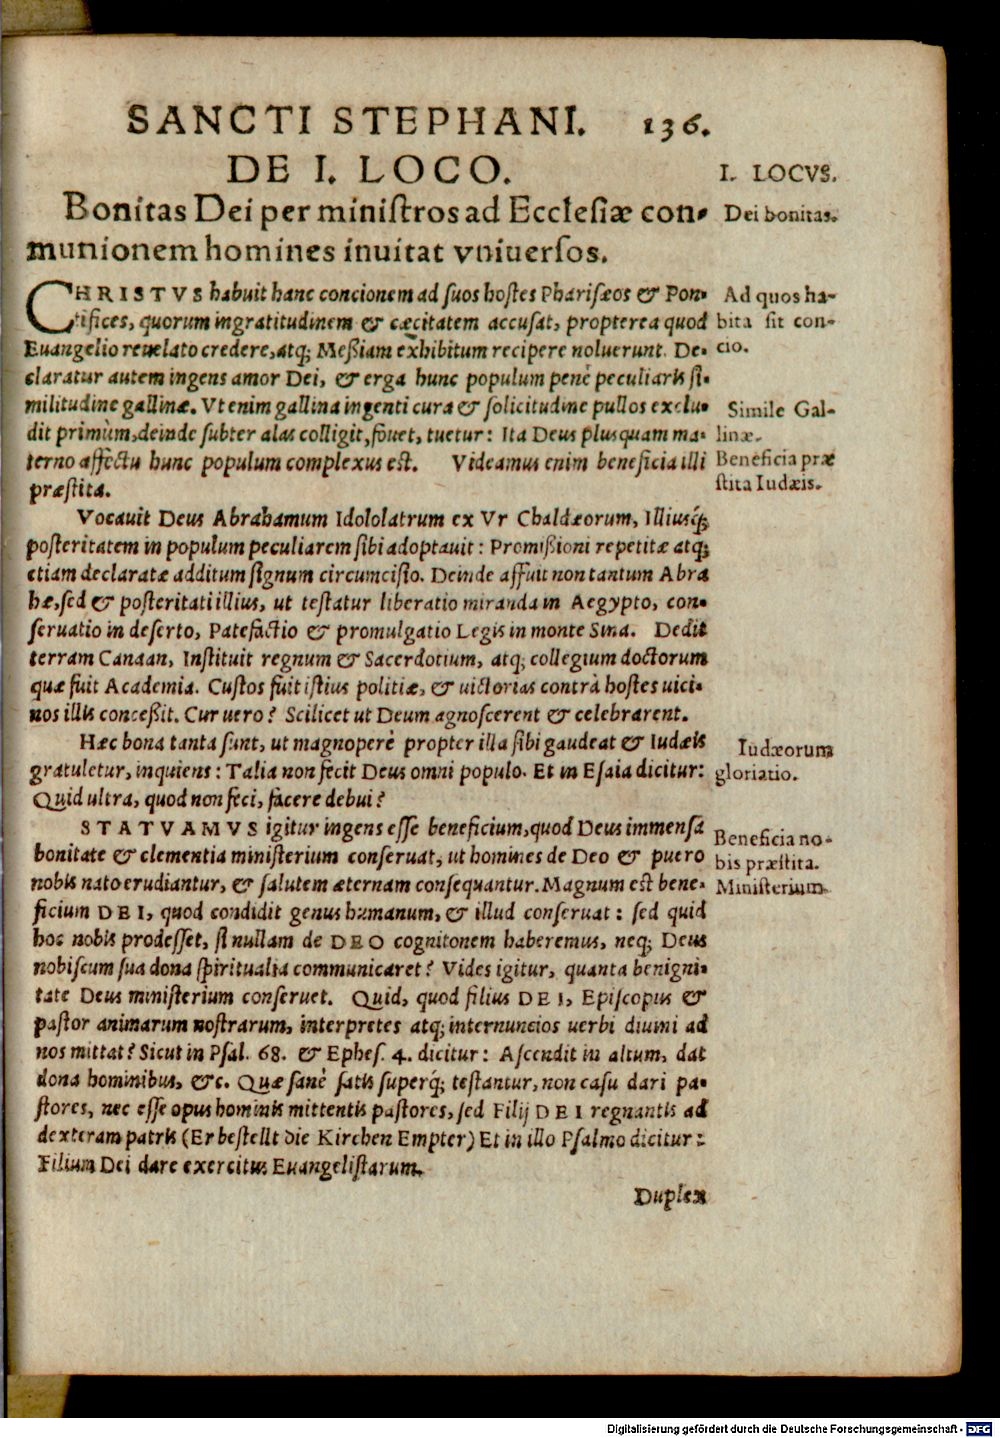 SANCTI STEPHANI. 136.
DE I. LOCO.
I. LOCVS.
Bonitas Dei per ministros ad Ecclesiæ con-
Dei bonitas.
munionem homines inuitat vniuersos.
CHRISTVS habuit hanc concionem ad suos hostes Pharisæos & Pon-
Ad quos ha-
tifices, quorum ingratitudinem & cæcitatem accusat, propterea quod
bita sit con-
Euangelio reuelato credere, atq; Meßiam exhibitum recipere noluerunt. De-
cio.
claratur autem ingens amor Dei, & erga hunc populum penè peculiaris si-
militudine gallinæ. Vt enim gallina ingenti cura & solicitudine pullos exclu-
Simile Gal-
dit primùm, deinde subter alas colligit, fouet, tuetur: Ita Deus plusquam ma-
linæ.
terno affectu hunc populum complexus est. Videamus enim beneficia illi
Beneficia præ
præstita.
stita Iudæis.
Vocauit Deus Abrahamum Idololatrum ex Vr Chaldæorum, Illiusq́;
posteritatem in populum peculiarem sibi adoptauit: Promißioni repetitæ atq;
etiam declaratæ additum signum circumcisio. Deinde affuit non tantum Abra
hæ, sed & posteritati illius, ut testatur liberatio miranda in Aegypto, con-
seruatio in deserto, Patefactio & promulgatio Legis in monte Sina. Dedit
terram Canaan, Instituit regnum & Sacerdotium, atq; collegium doctorum
quæ fuit Academia. Custos fuit istius politiæ, & uictorias contrà hostes uici-
nos illis conceßit. Cur uero? Scilicet ut Deum agnoscerent & celebrarent.
Hæc bona tanta sunt, ut magnoperè propter illa sibi gaudeat & Iudæis
Iudæorum
gratuletur, inquiens: Talia non fecit Deus omni populo. Et in Esaia dicitur:
gloriatio.
Quid ultra, quod non feci, facere debui?
STATVAMVS igitur ingens esse beneficium, quod Deus immensa
Beneficia no-
bonitate & clementia ministerium conseruat, ut homines de Deo & puero
bis præstita.
nobis nato erudiantur, & salutem æternam consequantur. Magnum est bene-
Ministerium.
ficium DEI, quod condidit genus humanum, & illud conseruat: sed quid
hoc nobis prodesset, si nullam de DEO cognitonem haberemus, neq; Deus
nobiscum sua dona spiritualia communicaret? Vides igitur, quanta benigni-
tate Deus ministerium conseruet. Quid, quod filius DEI, Episcopus &
pastor animarum nostrarum, interpretes atq; internuncios uerbi diuini ad
nos mittat? Sicut in Psal. 68. & Ephes. 4. dicitur: Ascendit in altum, dat
dona hominibus, &c. Quæ sanè satis superq́; testantur, non casu dari pa-
stores, nec esse opus hominis mittentis pastores, sed Filij DEI regnantis ad
dexteram patris (Er bestellt die Kirchen Empter) Et in illo Psalmo dicitur:
Filium Dei dare exercitus Euangelistarum.
Duplex
Digitalisierung gefördert durch die Deutsche Forschungsgemeinschaft - DFG